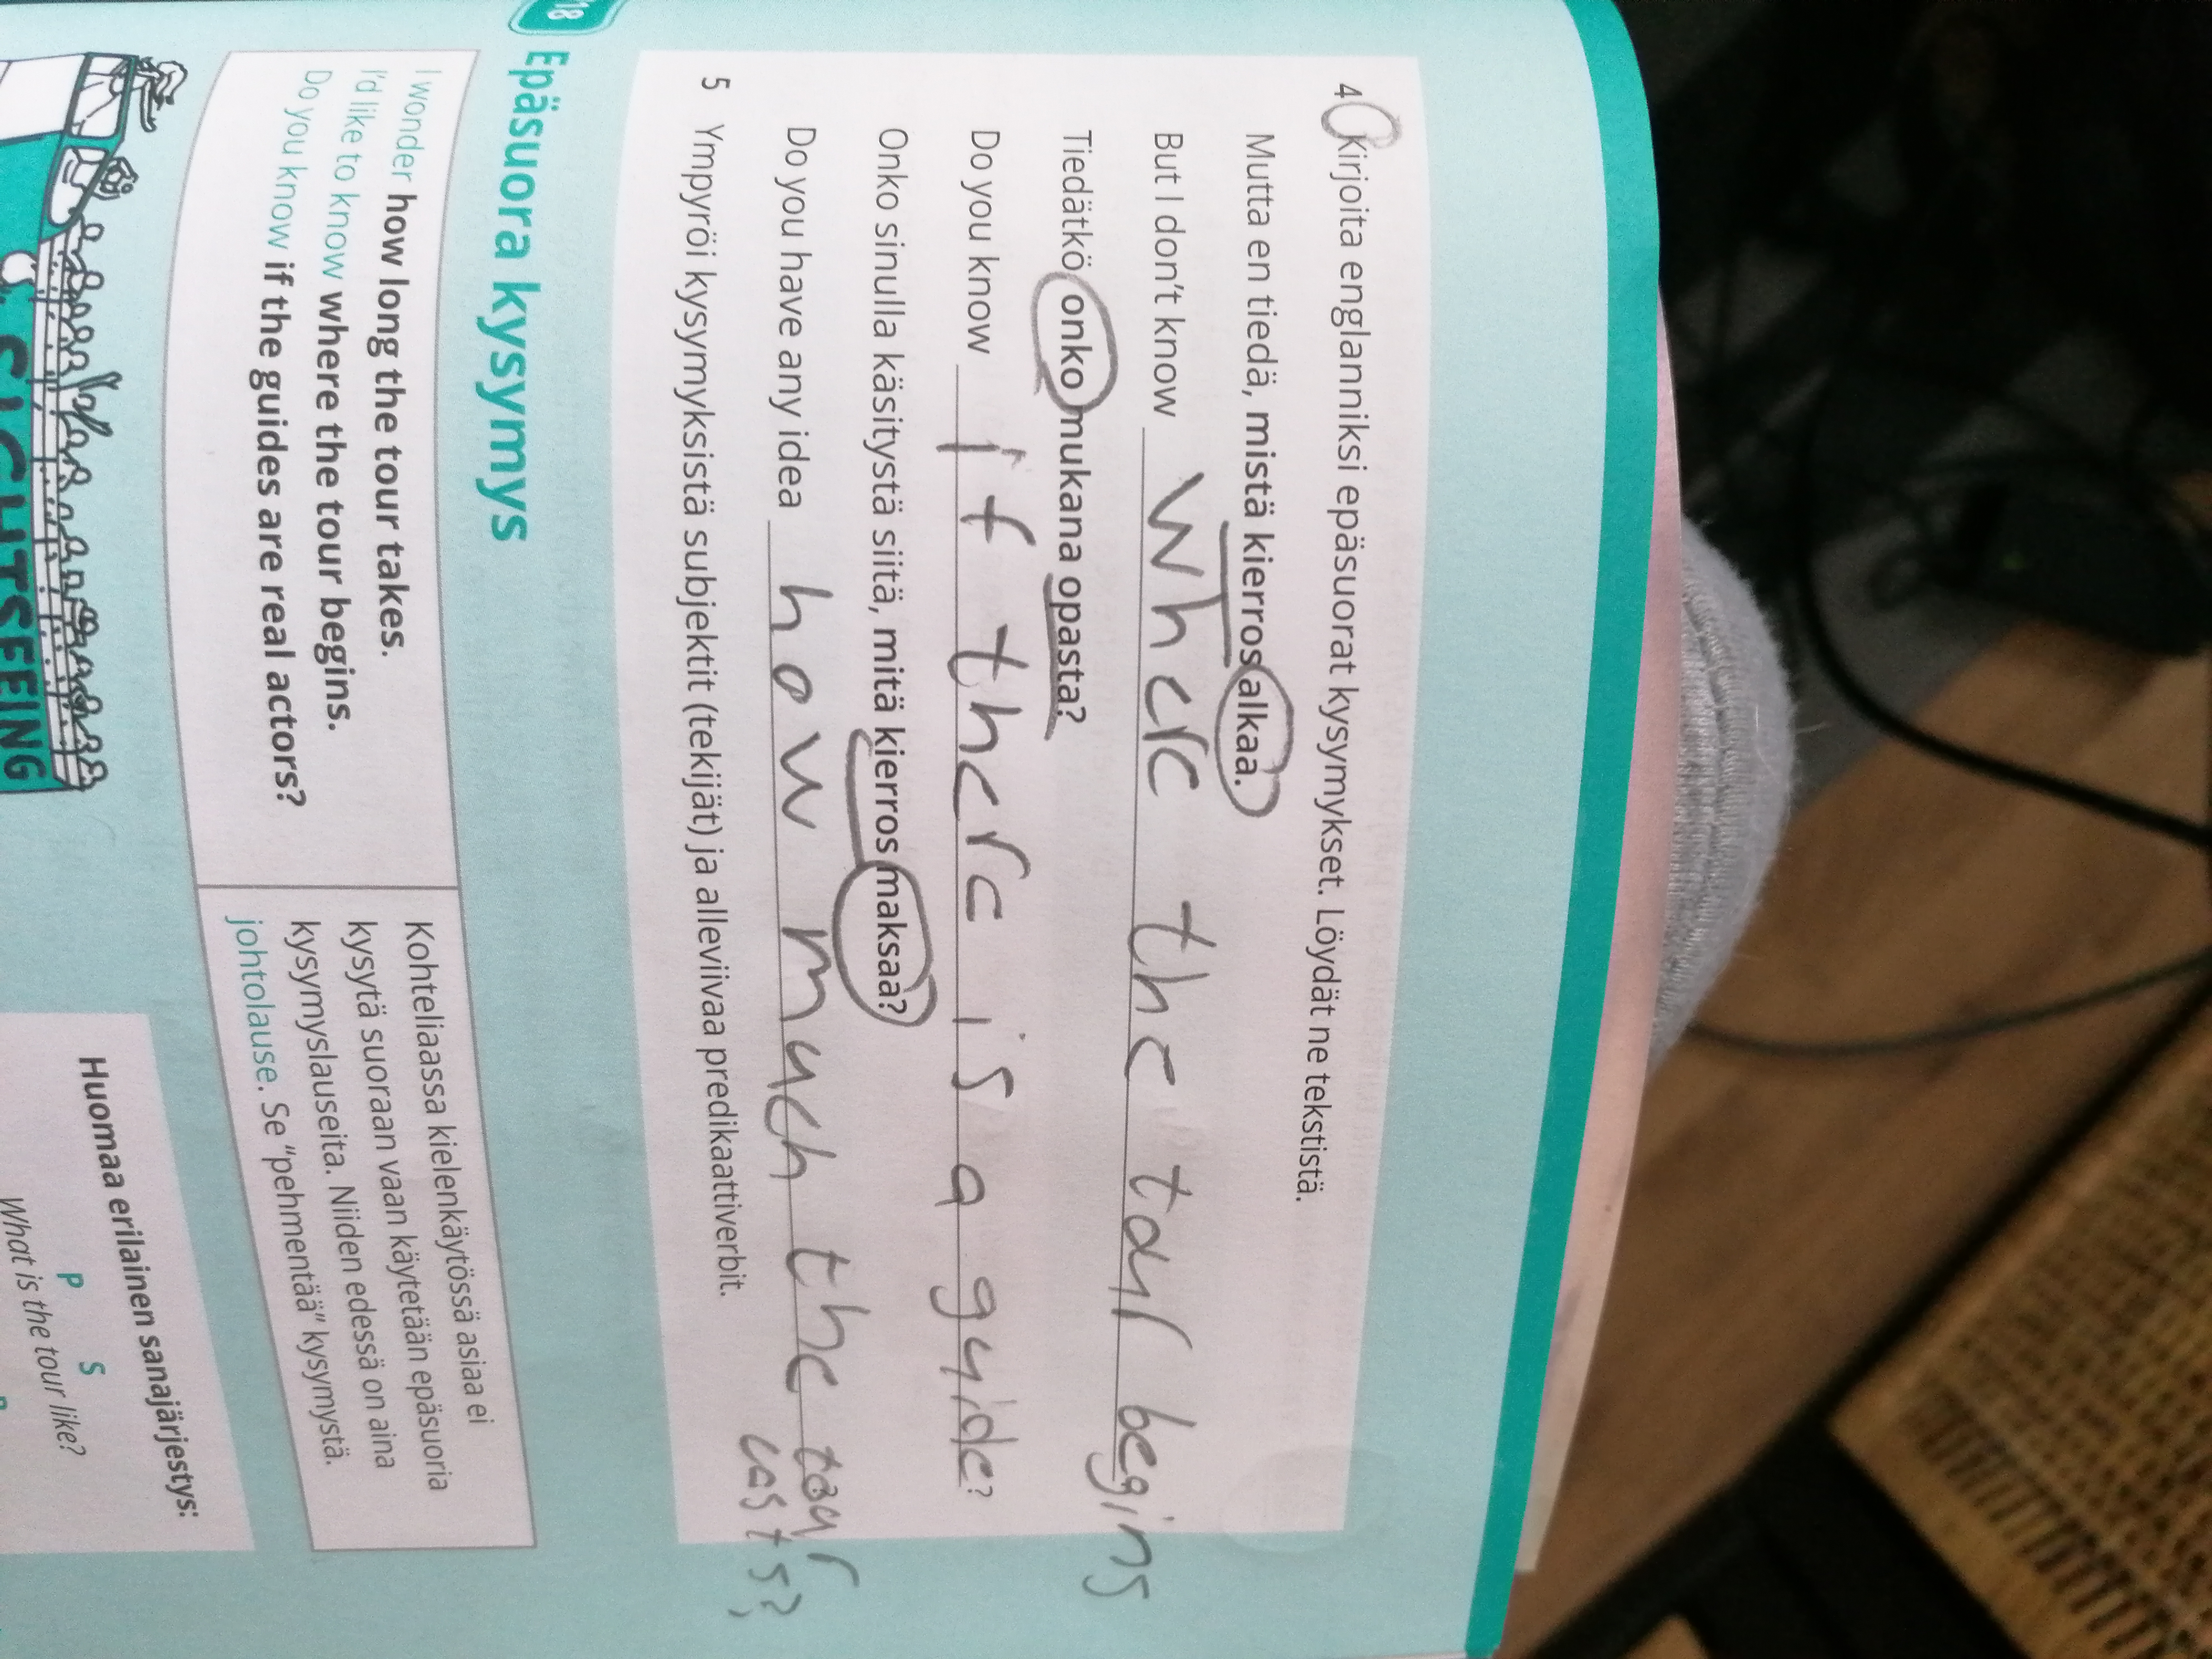 4 Kirjoita englanniksi epäsuorat kysymykset. Löydät ne tekstistä.
Mutta en tiedä, mistä kierros alkaa.
But I don't know where the tour begins
Tiedätkö onko mukana opasta?
Do you know if there is a guide?
Onko sinulla käsitystä siitä, mitä kierros maksaa?
Do you have any idea how much the tour
costs?
5 Ympyröi kysymyksistä subjektit (tekijät) ja alleviivaa predikaattiverbit.
18 Epäsuora kysymys
I wonder how long the tour takes.
I'd like to know where the tour begins.
Do you know if the guides are real actors?
Kohteliaassa kielenkäytössä asiaa ei
kysytä suoraan vaan käytetään epäsuoria
kysymyslauseita. Niiden edessä on aina
johtolause. Se "pehmentää" kysymystä.
Huomaa erilainen sanajärjestys:
P S
What is the tour like?
SIGHTSEEING